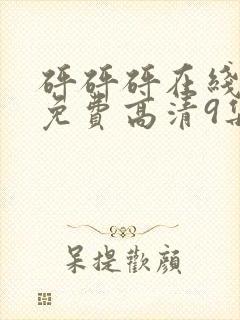 砰砰砰在线
免费高清9集
呆提歡顔